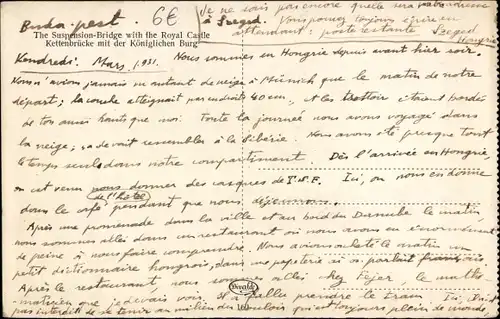 Buda-pest. 6€
Je ne sais pas encore quelle sera adresse
à Szeged. Vous pouvez toujours écrire en
attendant : poste restante Szeged
Hongrie
The Suspension-Bridge with the Royal Castle
Kettenbrücke mit der Königlichen Burg
Vendredi. Mars. 1931. Nous sommes en Hongrie depuis avant hier soir.
Nous n'avions jamais eu autant de neige à Münich que le matin de notre
départ ; la couche atteignait par endroits 40 cm, et les trottoirs étaient bordés
de tas aussi hauts que moi. Toute la journée nous avons voyagé dans
la neige ; ça devait ressembler à la Sibérie. Nous avons été presque tout
le temps seuls dans notre compartiment. Dès l'arrivée en Hongrie,
on est venu nous donner des casques de T.S.F. Ici, on nous en donne
dans le café de l'hôtel pendant que nous déjeunons.
Après une promenade dans la ville et au bord du Danube le matin,
nous sommes allés dans un restaurant où nous avons eu énormément
de peine à nous faire comprendre. Nous avons acheté le matin un
petit dictionnaire hongrois, dans une papeterie où on parlait français.
Après le restaurant, nous sommes allés chez Fejer, le mathé-
maticien que je devais voir. Il a fallu prendre le tram. Ici, il n'est
pas interdit de se tenir au milieu des toujours plein de monde,
Divald